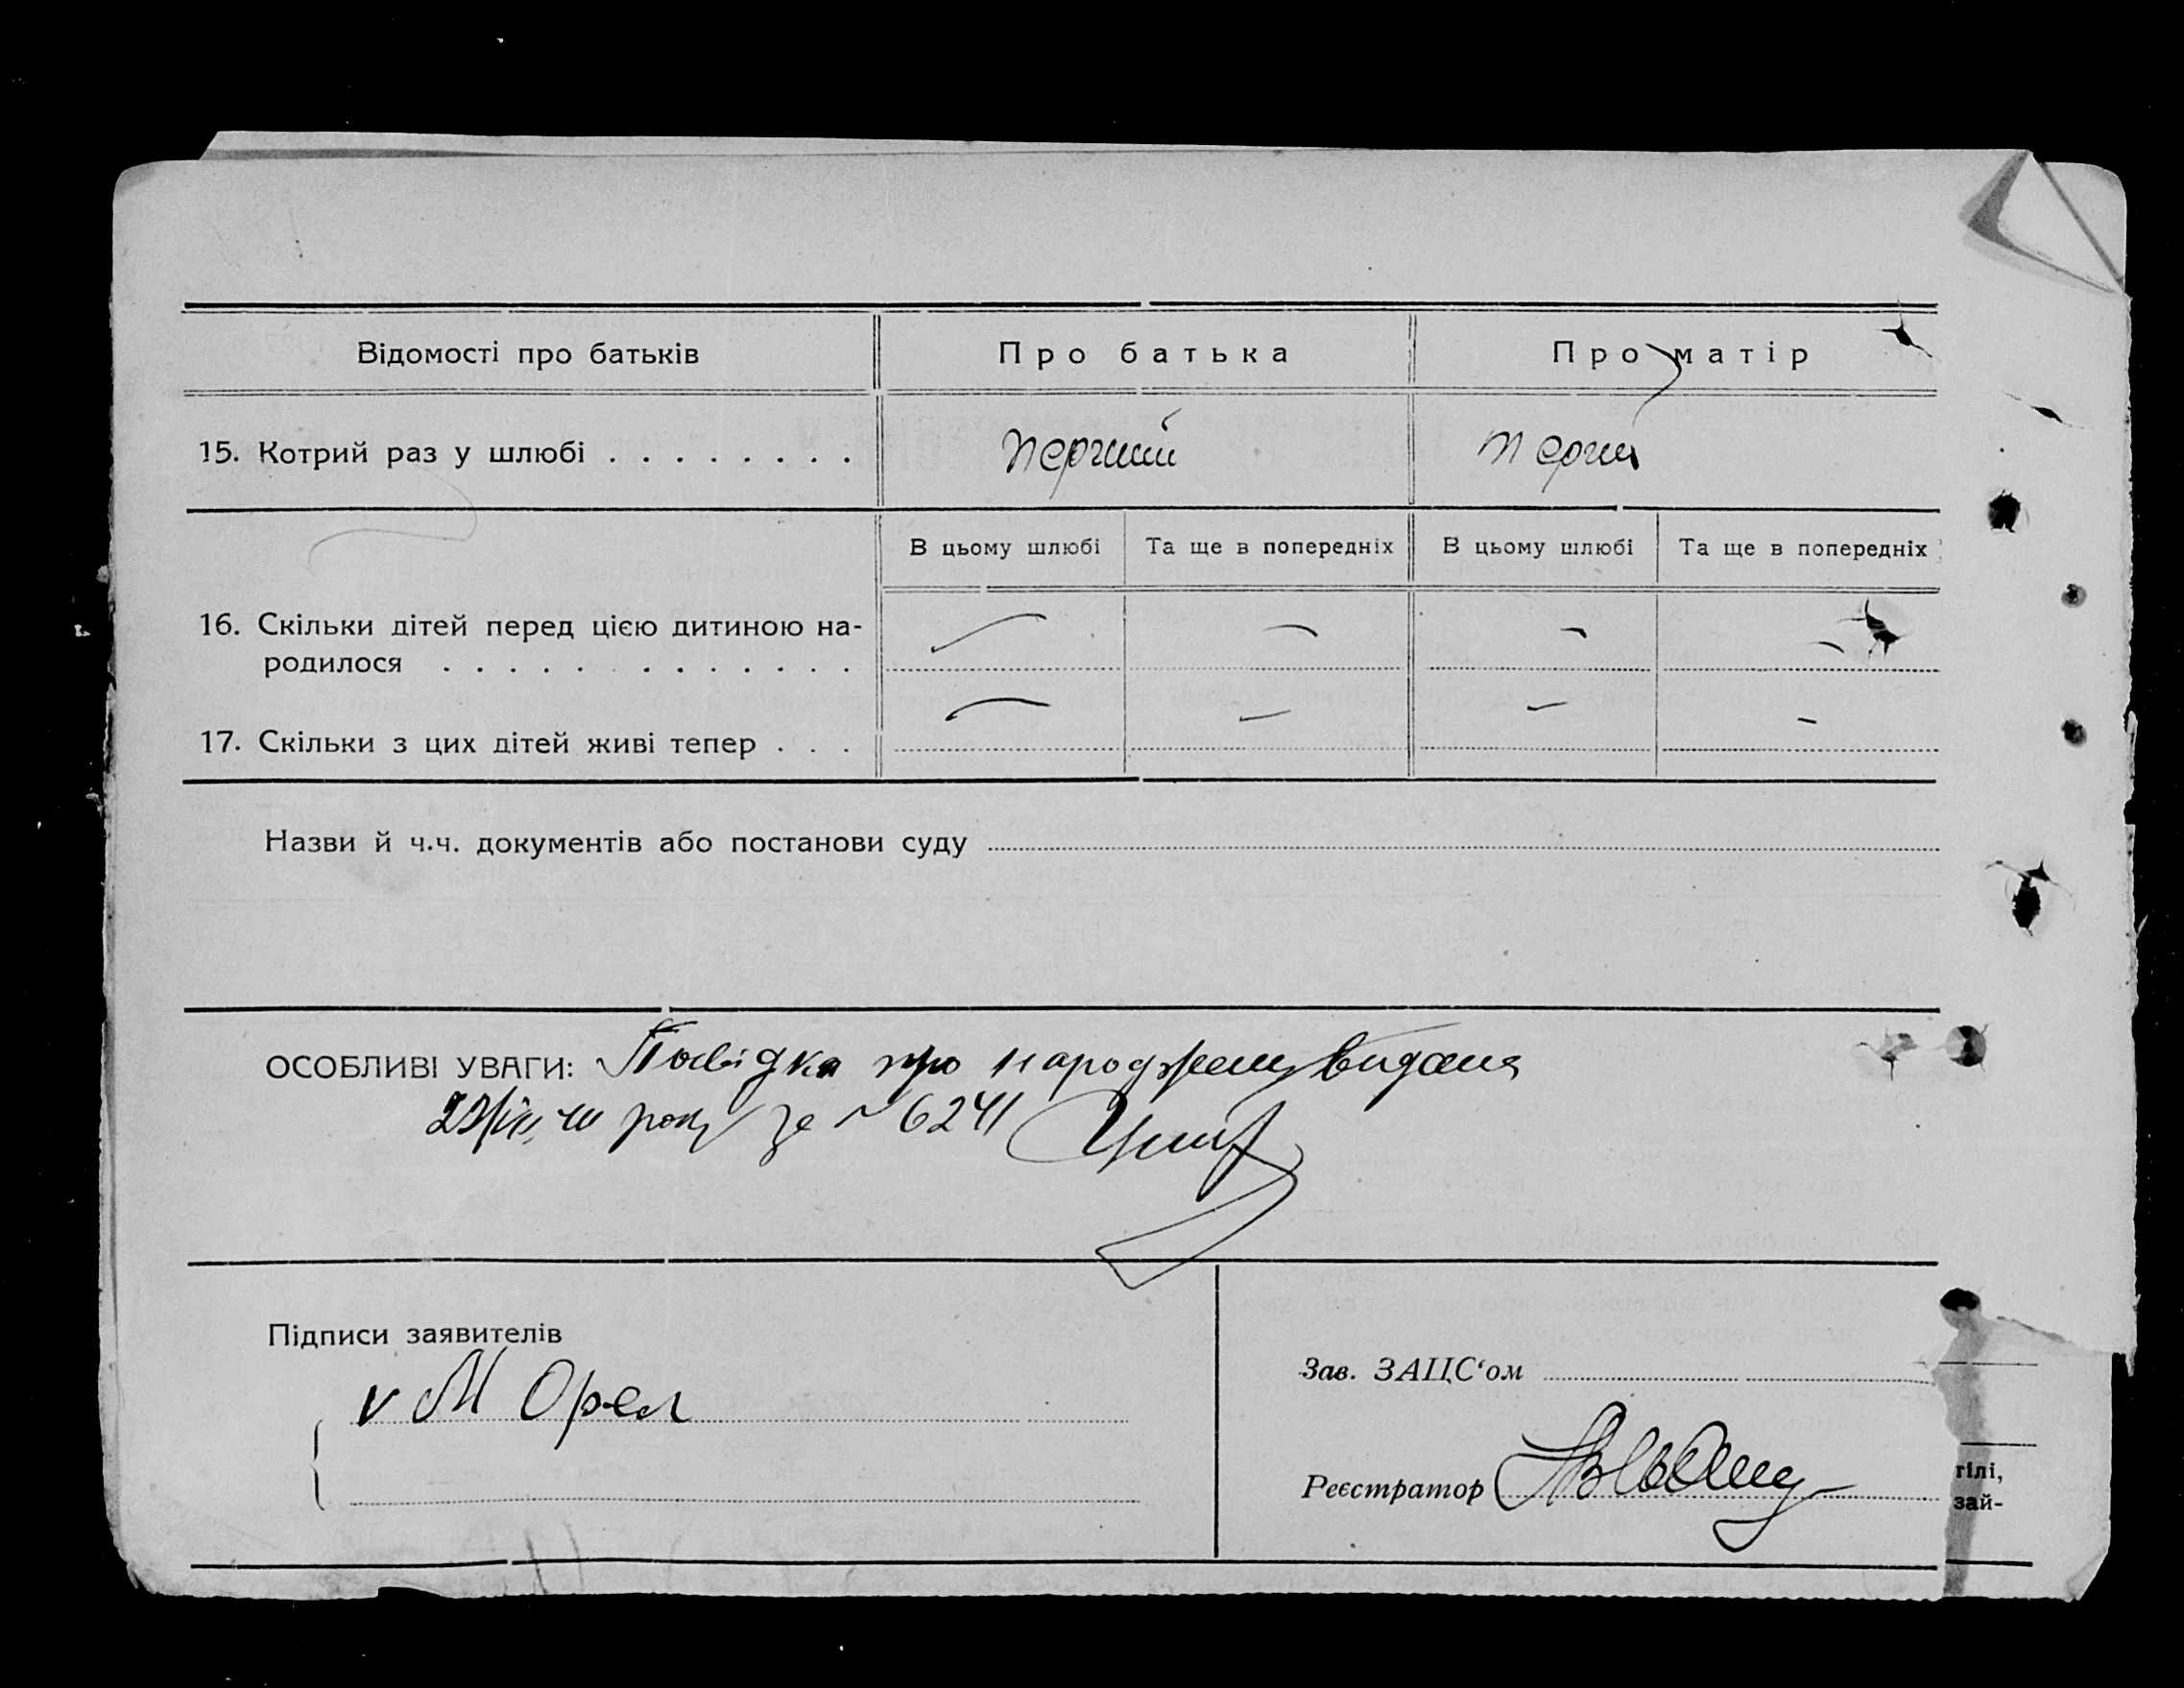 Відомості про батьків Про батька Про матір
15. Котрий раз у шлюбі . . . . . . . . перший
В цьому шлюбі Та ще в попередніх В цьому шлюбі Та ще в попередніх
16. Скільки дітей перед цією дитиною на-
родилося . . . . . . . . . . . . . — — — —
17. Скільки з цих дітей живі тепер . . . — — — —
Назви й ч.ч. документів або постанови суду
ОСОБЛИВІ УВАГИ: Посвідка про народжен видана
року за № 6241
Підписи заявителів
v М Орел
Зав. ЗАЦС‘ом
Реєстратор
гілі,
зай-